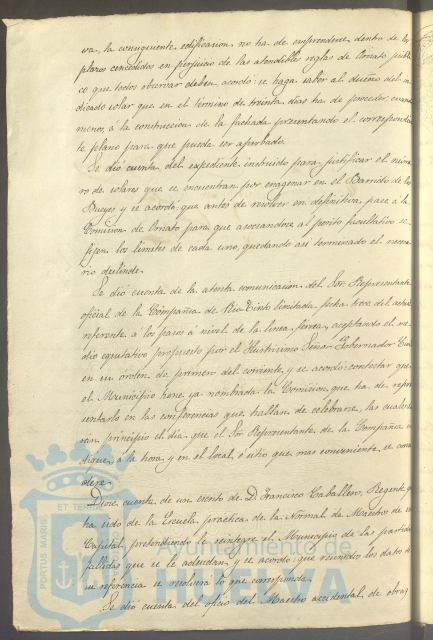 va, la consiguiente edificacion no ha de emprenderse dentro de los
plazos concedidos en perjuicio de las atendibles reglas de Ornato públi
co que todos observar deben, acordó: se haga saber al dueño del in
dicado solar que en el término de treinta dias ha de proceder, cuando
menos á la construccion de la fachada presentando el correspondien
te plano para que pueda ser aprobado.
Se dió cuenta del expediente instruido para justificar el núme
ro de solares que se encuentran por enagenar en el Barrido de los
Bueyes y se acordó: que antes de resolver en definitiva, pase á la
Comision de Ornato para que asociandose al perito facultativo se
fijen los límites de cada uno, quedando así terminado el necesa
rio deslinde.
Se dió cuenta de la atenta comunicacion del Sor. Representante
oficial de la Compañia de Rio Tinto limitada, fecha trece del actual
referente á los pasos á nivel de la linea férrea, aceptando el me
dio equitativo propuesto por el Ilustrisimo Señor Gobernador Civil
en su orden de primero del corriente, y se acordó: contestar que
el Municipio tiene ya nombrada la Comision que ha de repre
sentarlo en las conferencias que hallan de celebrarse, las cuales da
ran principio el dia que el Sor Representante de la Compañia in
dique, á la hora y en el local, ó sitio que mas conveniente se consi
dere.
Diose cuenta de un escrito de D. Francisco Caballero, Regente q.
ha sido de la Escuela práctica de la Normal de Maestros de esta
Capital, pretendiendo le reintegre el Municipio de las partidas
fallidas que se le adeudan, y se acordó: que reunidos los datos de
su referencia se resolverá lo que corresponda.
Se dió cuenta del oficio del Maestro accidental de obras
PORTUS MARIS
ET TERRAE
Ayuntamiento de
HUELVA